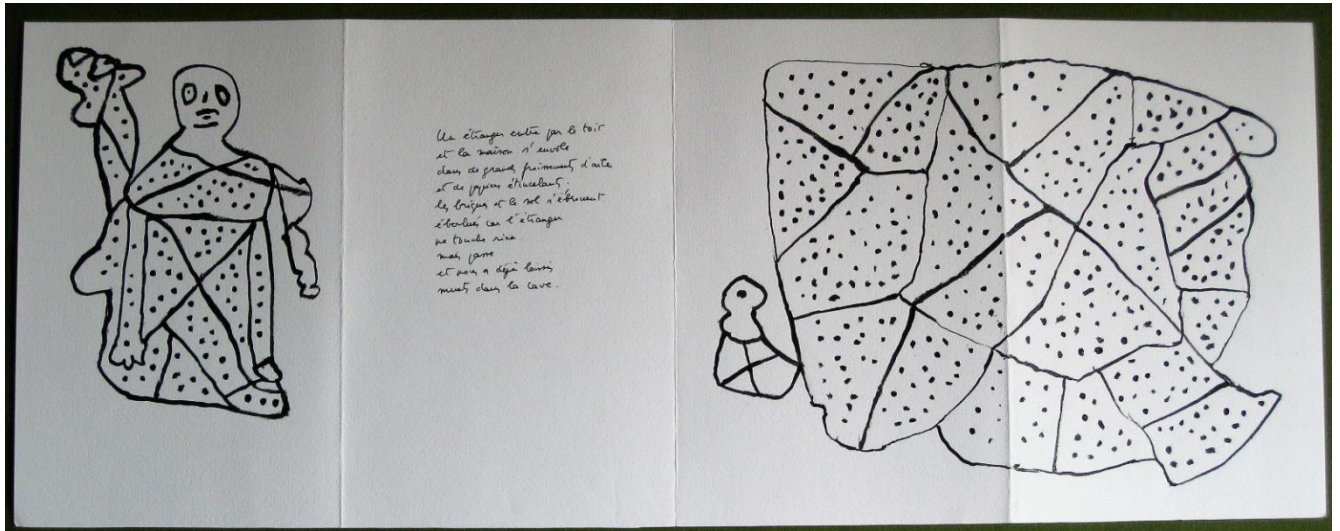 Un étranger entre par le toit
et la maison s'envole
dans de grands froissements d'aile
et de papiers étincelants.
les briques et le sol s'ébrouent
éberlués car l'étranger
ne touche rien
mais passe
et nous a déjà laissés
muets dans la cave.